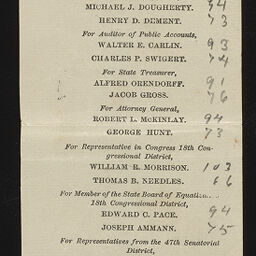 MICHAEL J. DOUGHERTY. 94
HENRY D. DEMENT. 73
For Auditor of Public Accounts,
WALTER E. CARLIN. 93
CHARLES P. SWIGERT. 74
For State Treasurer,
ALFRED ORENDORFF. 91
JACOB GROSS. 76
For Attorney General,
ROBERT L. McKINLAY. 94
GEORGE HUNT. 73
For Representative in Congress 18th Con-
gressional District,
WILLIAM R. MORRISON. 103
THOMAS B. NEEDLES. 66
For Member of the State Board of Equaliza...
18th Congressional District,
EDWARD C. PACE. 94
JOSEPH AMMANN. 75
For Representatives from the 47th Senatorial
District,